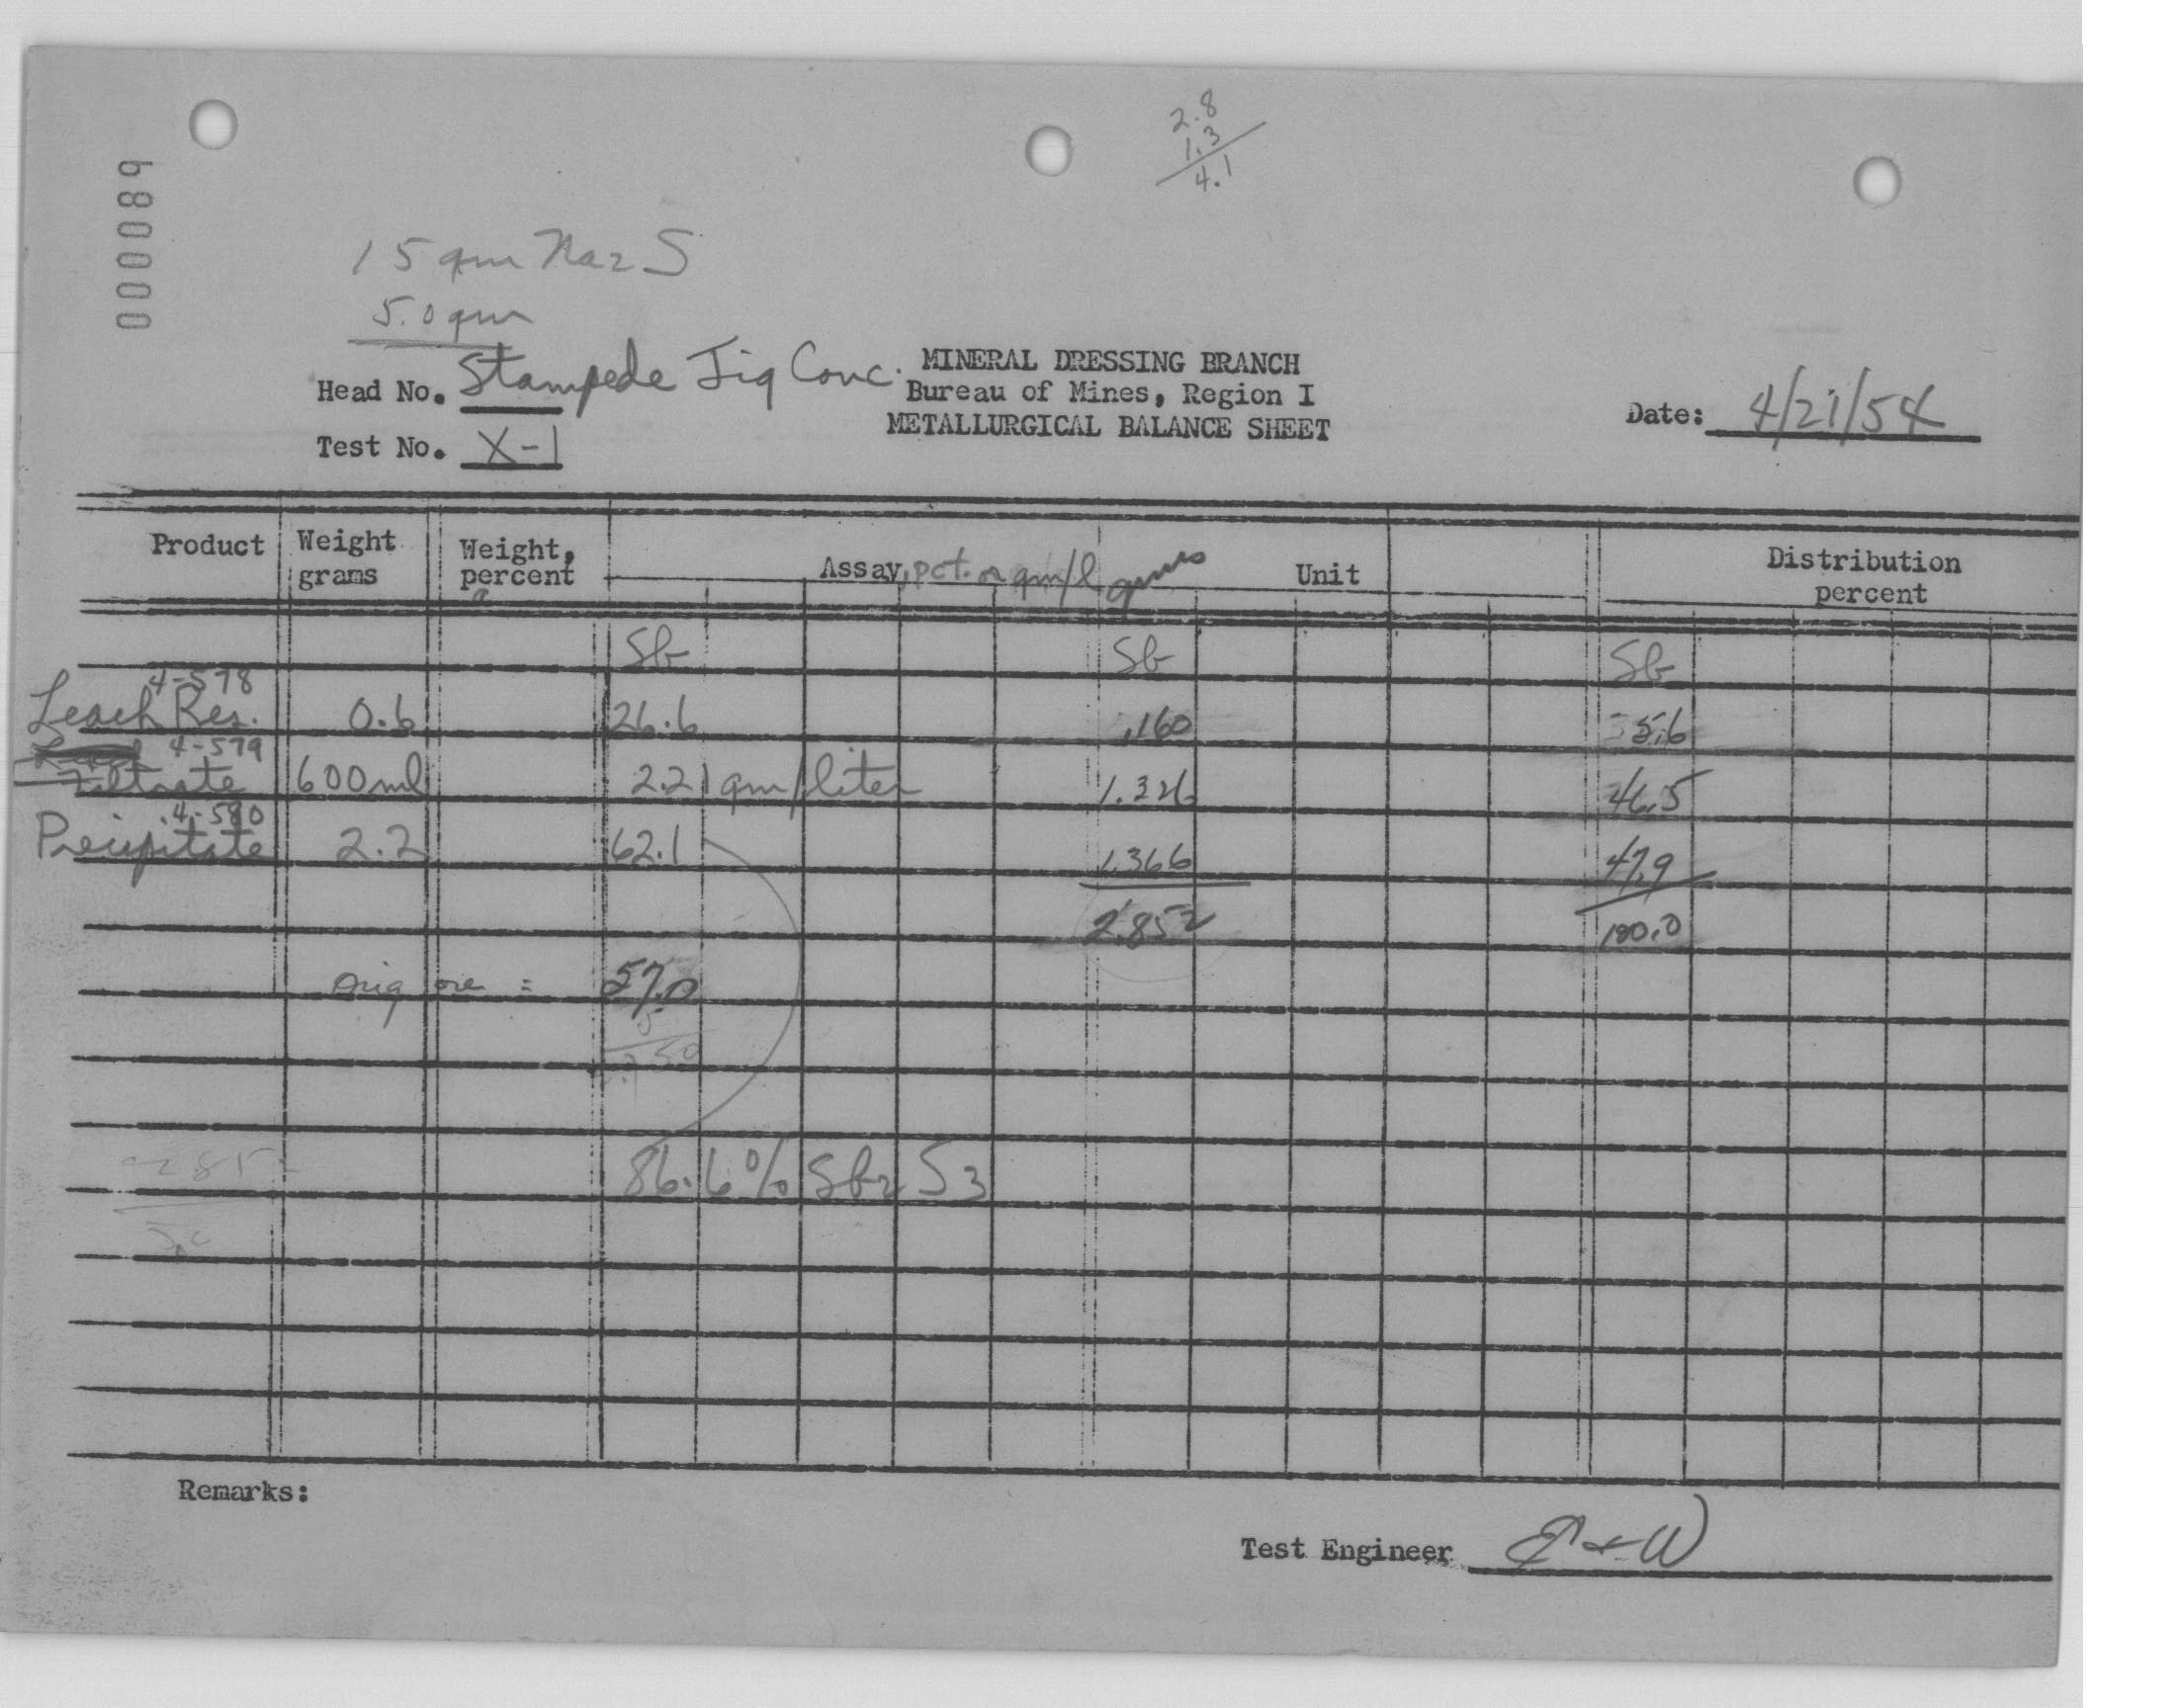 2.8
1.3
4.1
000089
15 gm Na2S
5.0 gm
Head No. Stampede Jig Conc.
MINERAL DRESSING BRANCH
Bureau of Mines, Region I
METALLURGICAL BALANCE SHEET
Date: 4/21/54
Test No. X-1
Product Weight grams Weight, percent Assay, pct. or gm/l gms Unit Distribution percent
Sb Sb Sb
4-578
Leach Res. 0.6 26.6 .160 5.6
4-579
Filtrate 600 ml 2.21 gm/liter 1.326 46.5
4-580
Precipitate 2.2 62.1 1.366 47.9
2.852 100.0
Orig ore = 57.0
5
2.850
86.6% Sb2S3
2.85
5.0
Remarks:
Test Engineer